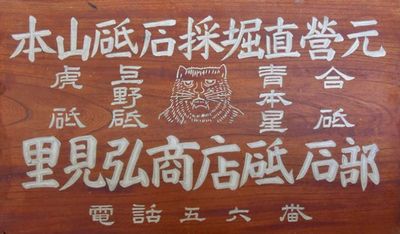 本山砥石採堀直營元
虎砥
野砥
青本星
合砥
里見弘商店砥石部
電話五六番